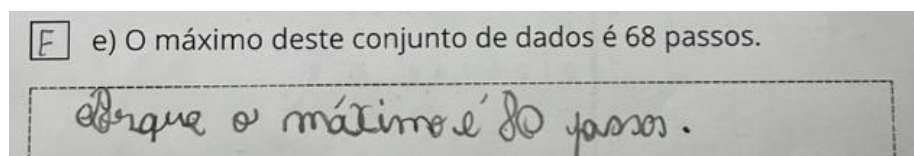 F e) O máximo deste conjunto de dados é 68 passos.
Porque o máximo é 80 passos.